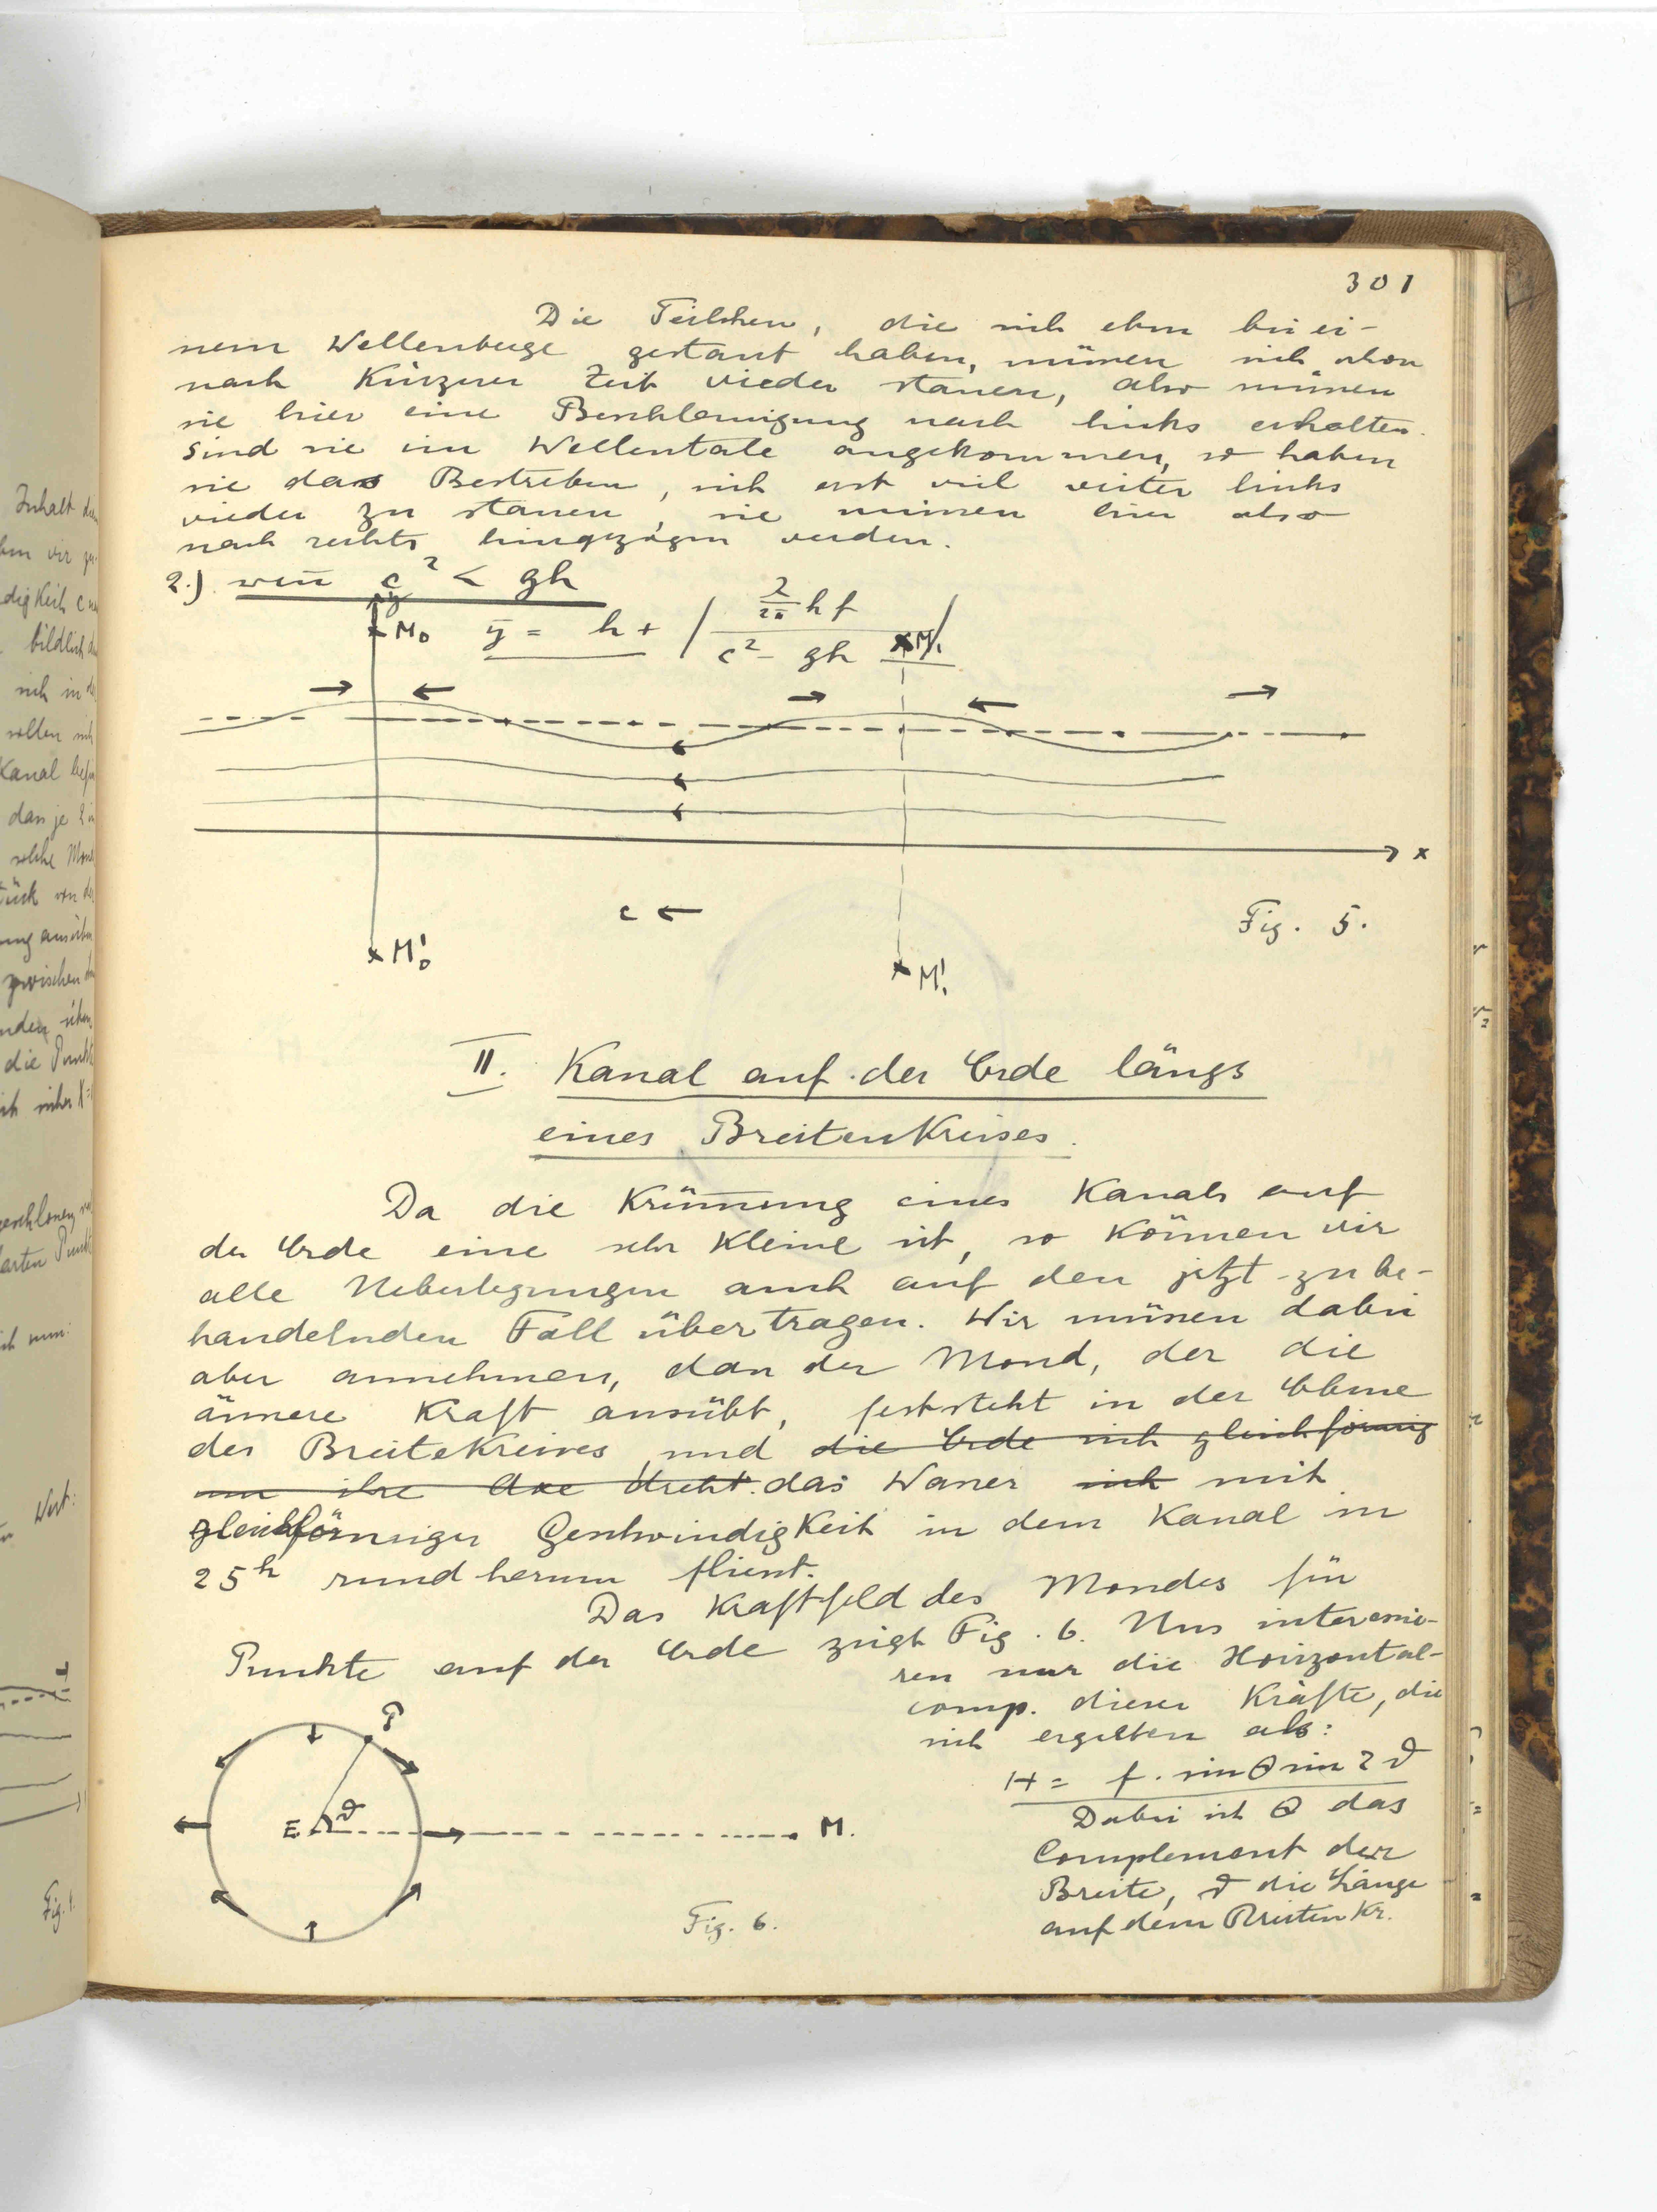 301
Die Teilchen, die sich eben bei ei-
nem Wellenberge gestaut haben, müssen sich schon
nach Kürzerer Zeit wieder stauen, also müssen
sie hier eine Beschleunigung nach links erhalten.
Sind sie im Wellentale angekommen, so haben
sie das Bestreben, sich erst viel weiter links
wieder zu stauen, sie müssen hier also
nach rechts hingezogen werden.
2.) weñ c² < gh
y
M₀ ȳ = h + | λ/2π h f / c² - gh |
M₁
x
c ←
Fig. 5.
M₀'
M₁'
II. Kanal auf der Erde längs
eines BreitenKreises.
Da die Krüm̄ung eines Kanals auf
der Erde eine sehr Kleine ist, so Können wir
alle Ueberlegungen auch auf den jetzt zu be-
handelnden Fall übertragen. Wir müssen dabei
aber annehmen, dass der Mond, der die
äussere Kraft ausübt, feststeht in der Ebene
des BreiteKreises und die Erde sich gleichförmig
um ihre Axe dreht. das Wasser sich mit
gleichförmiger GeschwindigKeit in dem Kanal in
25ʰ rund herum fliesst.
Das Kraftfeld des Mondes für
Punkte auf der Erde zeigt Fig. 6. Uns interessie-
ren nur die Horizontal-
comp. dieser Kräfte, die
sich ergeben als:
H = f. sin Θ sin 2 ϑ
Dabei ist Θ das
Complement der
Breite, ϑ die Länge
auf dem Breiten Kr.
P
E ϑ
M.
Fig. 6.
Inhalt
digkeit c
bildlich
sich in
wollen sich
Kanal
dass je 2
solche
stück von
zwischen
die Punkte
ich nun:
Wert:
Fig. 1.